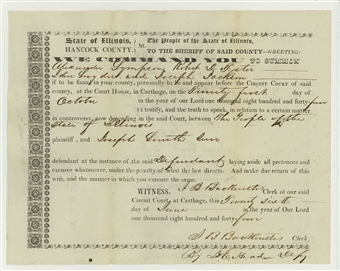 State of Illinois, The People of the State of Illinois,
HANCOCK COUNTY. TO THE SHERIFF OF SAID COUNTY—GREETING:
WE COMMAND YOU TO SUMMON
Robert
John Snyder and Joseph Jackson
if to be found in your county, personally to and appear before the Circuit Court of said
county, at the Court House, in Carthage, on the Twenty first day of
October in the year of our Lord one thousand eight hundred and forty five
to testify, and the truth to speak, in relation to a certain matter
in controversy, now depending in the said Court, between The People of the
State of Illinois
plaintiff, and Joseph Smith
defendant at the instance of the said Defendant laying aside all pretences and
excuses whatsoever, under the penalty of what the law directs. And make due return of this
writ, and the manner in which you execute the same.
WITNESS, J B Backenstos Clerk of our said
Circuit Court, at Carthage, this Twenty Sixth
day of June in the year of Our Lord
one thousand eight hundred and forty
J B Backenstos Clerk,
By Head Depy